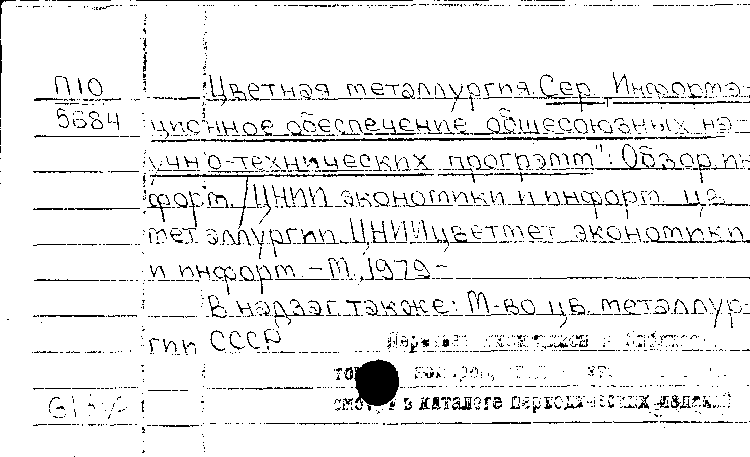 П10 Цветная металлургия. Сер. Информа-
5684 ционное обеспечение общесоюзных на-
учно-технических программ": Обзор. ин
форм. /ЦНИИ экономики и информ. цв.
металлургии. ЦНИИцветмет экономики
и информ. – М., 1979 –
В надзаг. также: М-во цв. металлур-
гии СССР
Перечень
смотри в каталоге периодических изданий